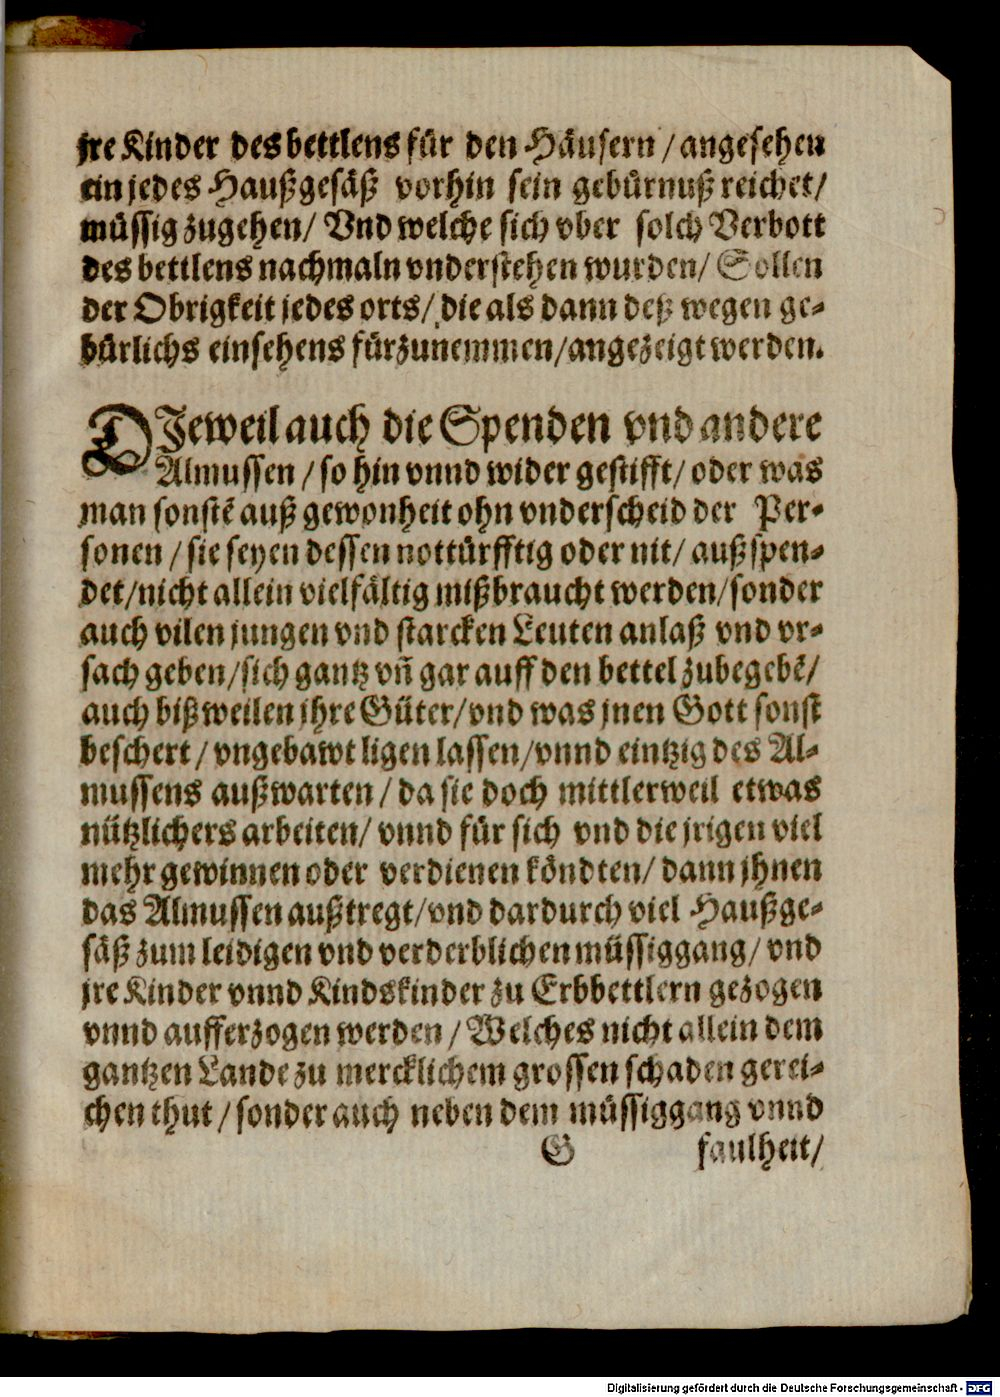 jre Kinder des bettlens für den Häusern / angesehen
ein jedes Haußgesäß vorhin sein gebürnuß reichet /
müssig zugehen / Vnd welche sich vber solch Verbott
des bettlens nachmaln vnderstehen wurden / Sollen
der Obrigkeit jedes orts / die als dann deß wegen ge-
bürlichs einsehens fürzunemmen / angezeigt werden.
DJeweil auch die Spenden vnd andere
Almussen / so hin vnnd wider gestifft / oder was
man sonstē auß gewonheit ohn vnderscheid der Per-
sonen / sie seyen dessen nottürfftig oder nit / auß spen-
det / nicht allein vielfältig mißbraucht werden / sonder
auch vilen jungen vnd starcken Leuten anlaß vnd vr-
sach geben / sich gantz vñ gar auff den bettel zubegebē /
auch bißweilen jhre Güter / vnd was jnen Gott sonst
beschert / vngebawt ligen lassen / vnnd eintzig des Al-
mussens außwarten / da sie doch mittlerweil etwas
nützlichers arbeiten / vnnd für sich vnd die jrigen viel
mehr gewinnen oder verdienen köndten / dann jhnen
das Almussen außtregt / vnd dardurch viel Haußge-
säß zum leidigen vnd verderblichen müssiggang / vnd
jre Kinder vnnd Kindskinder zu Erbbettlern gezogen
vnnd aufferzogen werden / Welches nicht allein dem
gantzen Lande zu mercklichem grossen schaden gerei-
chen thut / sonder auch neben dem müssiggang vnnd
G faulheit /
Digitalisierung gefördert durch die Deutsche Forschungsgemeinschaft - DFG